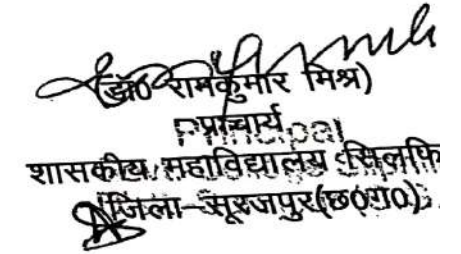 (डॉ0 रामकुमार मिश्र)
प्राचार्य
Principal
शासकीय महाविद्यालय सिलफि
जिला-सूरजपुर(छ0ग0)